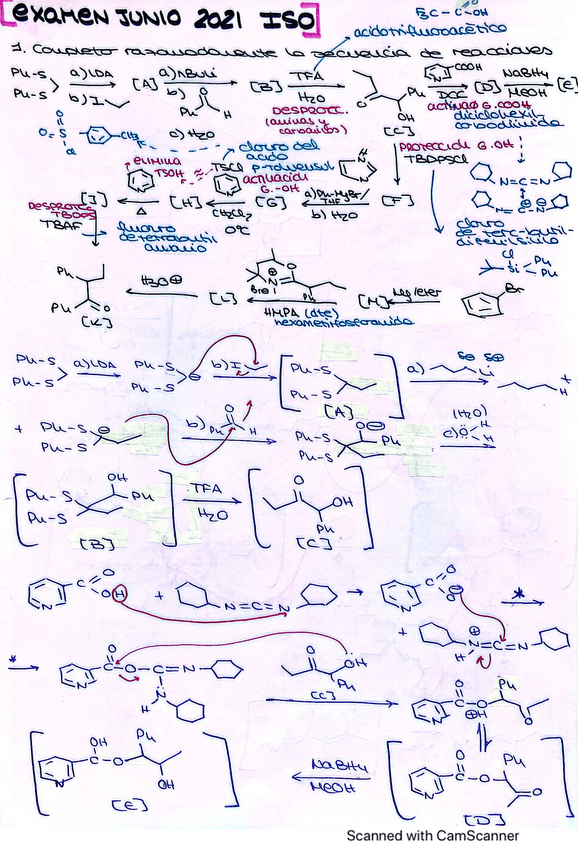 [EXAMEN JUNIO 2021 ISO]
F3C - C - OH
O
ácido trifluoroacético
1. Completa razonadamente la secuencia de reacciones
Ph-S
Ph-S
a) LDA
b) I
[A]
a) nBuLi
b) Ph H
O
c) H2O
[B]
TFA
H2O
DESPROTECC.
O
Ph
OH
[C]
COOH
N
DCC
ACTIVAC G. COOH
[D]
NaBH4
MeOH
[E]
cloruro del
ácido
p-toluensul
PROTECCIÓN G. OH
TBDPSCl
N=C=N
ELIMINA
TSOH
TSCl
ACTIVACIÓN
G. -OH
a) Ph-MgBr/
THF
b) H2O
[F]
[G]
CH2Cl2
0ºC
[H]
Δ
[I]
DESPROTEC
TBDPS
TBAF
fluoruro
de tetrabutil
amonio
cloruro
de terc-butil-
difenilsililo
Cl
Si
Ph
Ph
Ph
Ph
O
[K]
H3O⊕
[L]
HMPA (dte)
hexametilfosforamida
[M]
Mg/éter
Br
Ph-S
Ph-S
a) LDA
Ph-S
Ph-S
b) I
Ph-S
Ph-S
[A]
a)
Li
H
+
Ph-S
Ph-S
b) Ph H
O
Ph-S
Ph-S
O⊖
Ph
(H2O)
c) O H
H
Ph-S
Ph-S
OH
Ph
[B]
TFA
H2O
O
OH
Ph
[C]
N
C
O
OH
+
N=C=N
→
N
C
O
O⊖
*
+
N=C=N
H
*
N
C-O-C=N
O
N
H
O
OH
Ph
[C]
N
C-O
O
Ph
O
⊕H
N
C-O
O
Ph
O
[D]
NaBH4
MeOH
N
OH
C-O
Ph
OH
[E]
Scanned with CamScanner